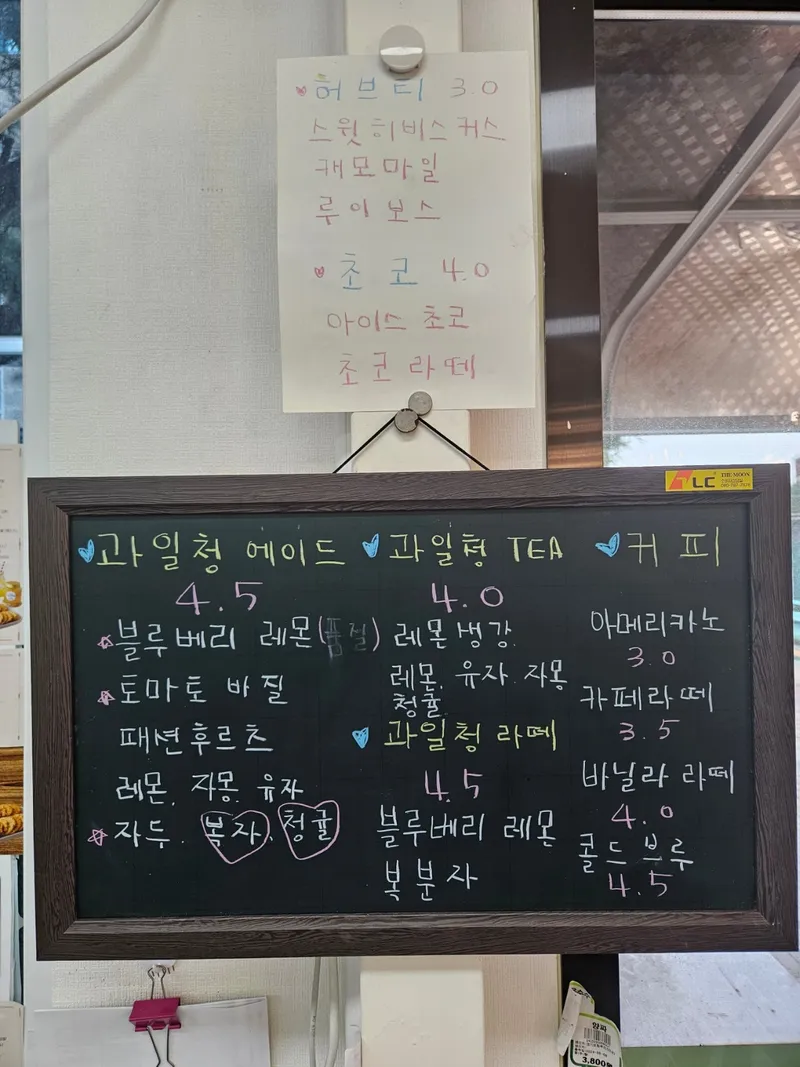 허브티 3.0
스윗히비스커스
캐모마일
루이보스
초코 4.0
아이스 초코
초코라떼
LC THE MOON
과일청 에이드
4.5
블루베리 레몬(품절)
토마토 바질
패션후르츠
레몬, 자몽, 유자
자두, 복자, 청귤
과일청 TEA
4.0
레몬생강
레몬, 유자, 자몽
청귤
과일청 라떼
4.5
블루베리 레몬
복분자
커피
아메리카노
3.0
카페라떼
3.5
바닐라 라떼
4.0
콜드브루
4.5
양파
3,800원